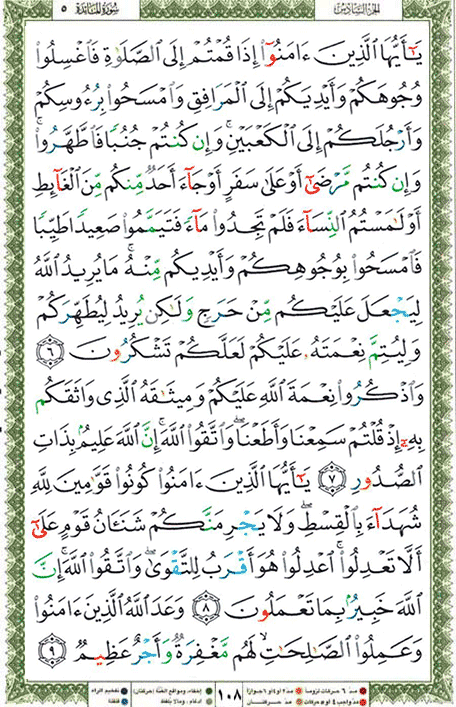 الجزء السادس
سورة المائدة ٥
يَـٰٓأَيُّهَا ٱلَّذِينَ ءَامَنُوٓا۟ إِذَا قُمْتُمْ إِلَى ٱلصَّلَوٰةِ فَٱغْسِلُوا۟
وُجُوهَكُمْ وَأَيْدِيَكُمْ إِلَى ٱلْمَرَافِقِ وَٱمْسَحُوا۟ بِرُءُوسِكُمْ
وَأَرْجُلَكُمْ إِلَى ٱلْكَعْبَيْنِ ۚ وَإِن كُنتُمْ جُنُبًا فَٱطَّهَّرُوا۟ ۚ
وَإِن كُنتُم مَّرْضَىٰٓ أَوْ عَلَىٰ سَفَرٍ أَوْ جَآءَ أَحَدٌ مِّنكُم مِّنَ ٱلْغَآئِطِ
أَوْ لَـٰمَسْتُمُ ٱلنِّسَآءَ فَلَمْ تَجِدُوا۟ مَآءً فَتَيَمَّمُوا۟ صَعِيدًا طَيِّبًا
فَٱمْسَحُوا۟ بِوُجُوهِكُمْ وَأَيْدِيكُم مِّنْهُ ۚ مَا يُرِيدُ ٱللَّهُ
لِيَجْعَلَ عَلَيْكُم مِّنْ حَرَجٍ وَلَـٰكِن يُرِيدُ لِيُطَهِّرَكُمْ
وَلِيُتِمَّ نِعْمَتَهُۥ عَلَيْكُمْ لَعَلَّكُمْ تَشْكُرُونَ ٦
وَٱذْكُرُوا۟ نِعْمَةَ ٱللَّهِ عَلَيْكُمْ وَمِيثَـٰقَهُ ٱلَّذِى وَاثَقَكُم
بِهِۦٓ إِذْ قُلْتُمْ سَمِعْنَا وَأَطَعْنَا ۖ وَٱتَّقُوا۟ ٱللَّهَ ۚ إِنَّ ٱللَّهَ عَلِيمٌۢ بِذَاتِ
ٱلصُّدُورِ ٧ يَـٰٓأَيُّهَا ٱلَّذِينَ ءَامَنُوا۟ كُونُوا۟ قَوَّٰمِينَ لِلَّهِ
شُهَدَآءَ بِٱلْقِسْطِ ۖ وَلَا يَجْرِمَنَّكُمْ شَنَـَٔانُ قَوْمٍ عَلَىٰٓ
أَلَّا تَعْدِلُوا۟ ۚ ٱعْدِلُوا۟ هُوَ أَقْرَبُ لِلتَّقْوَىٰ ۖ وَٱتَّقُوا۟ ٱللَّهَ ۚ إِنَّ
ٱللَّهَ خَبِيرٌۢ بِمَا تَعْمَلُونَ ٨ وَعَدَ ٱللَّهُ ٱلَّذِينَ ءَامَنُوا۟
وَعَمِلُوا۟ ٱلصَّـٰلِحَـٰتِ ۙ لَهُم مَّغْفِرَةٌ وَأَجْرٌ عَظِيمٌ ٩
مد ٦ حركات لزوما مد ٢ أو ٤ أو ٦ جوازا
مد واجب ٤ أو ٥ حركات مد حركتان
١٠٨
إخفاء، ومواقع الغنة (حركتان) تفخيم الراء
إدغام، وما لا يلفظ قلقلة